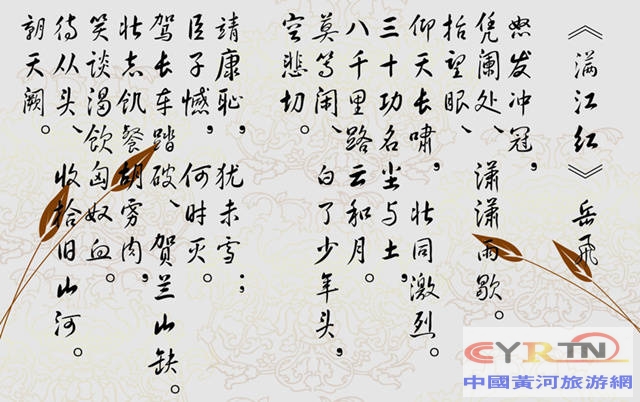 《满江红》岳飞
怒发冲冠,
凭阑处、潇潇雨歇。
抬望眼、
仰天长啸,壮同激烈。
三十功名尘与土,
八千里路云和月。
莫等闲、白了少年头,
空悲切。
靖康耻,犹未雪;
臣子憾,何时灭。
驾长车踏破、贺兰山缺。
壮志饥餐胡虏肉,
笑谈渴饮匈奴血。
待从头、收拾旧山河。
朝天阙。
CYRTN
中國黃河旅游網